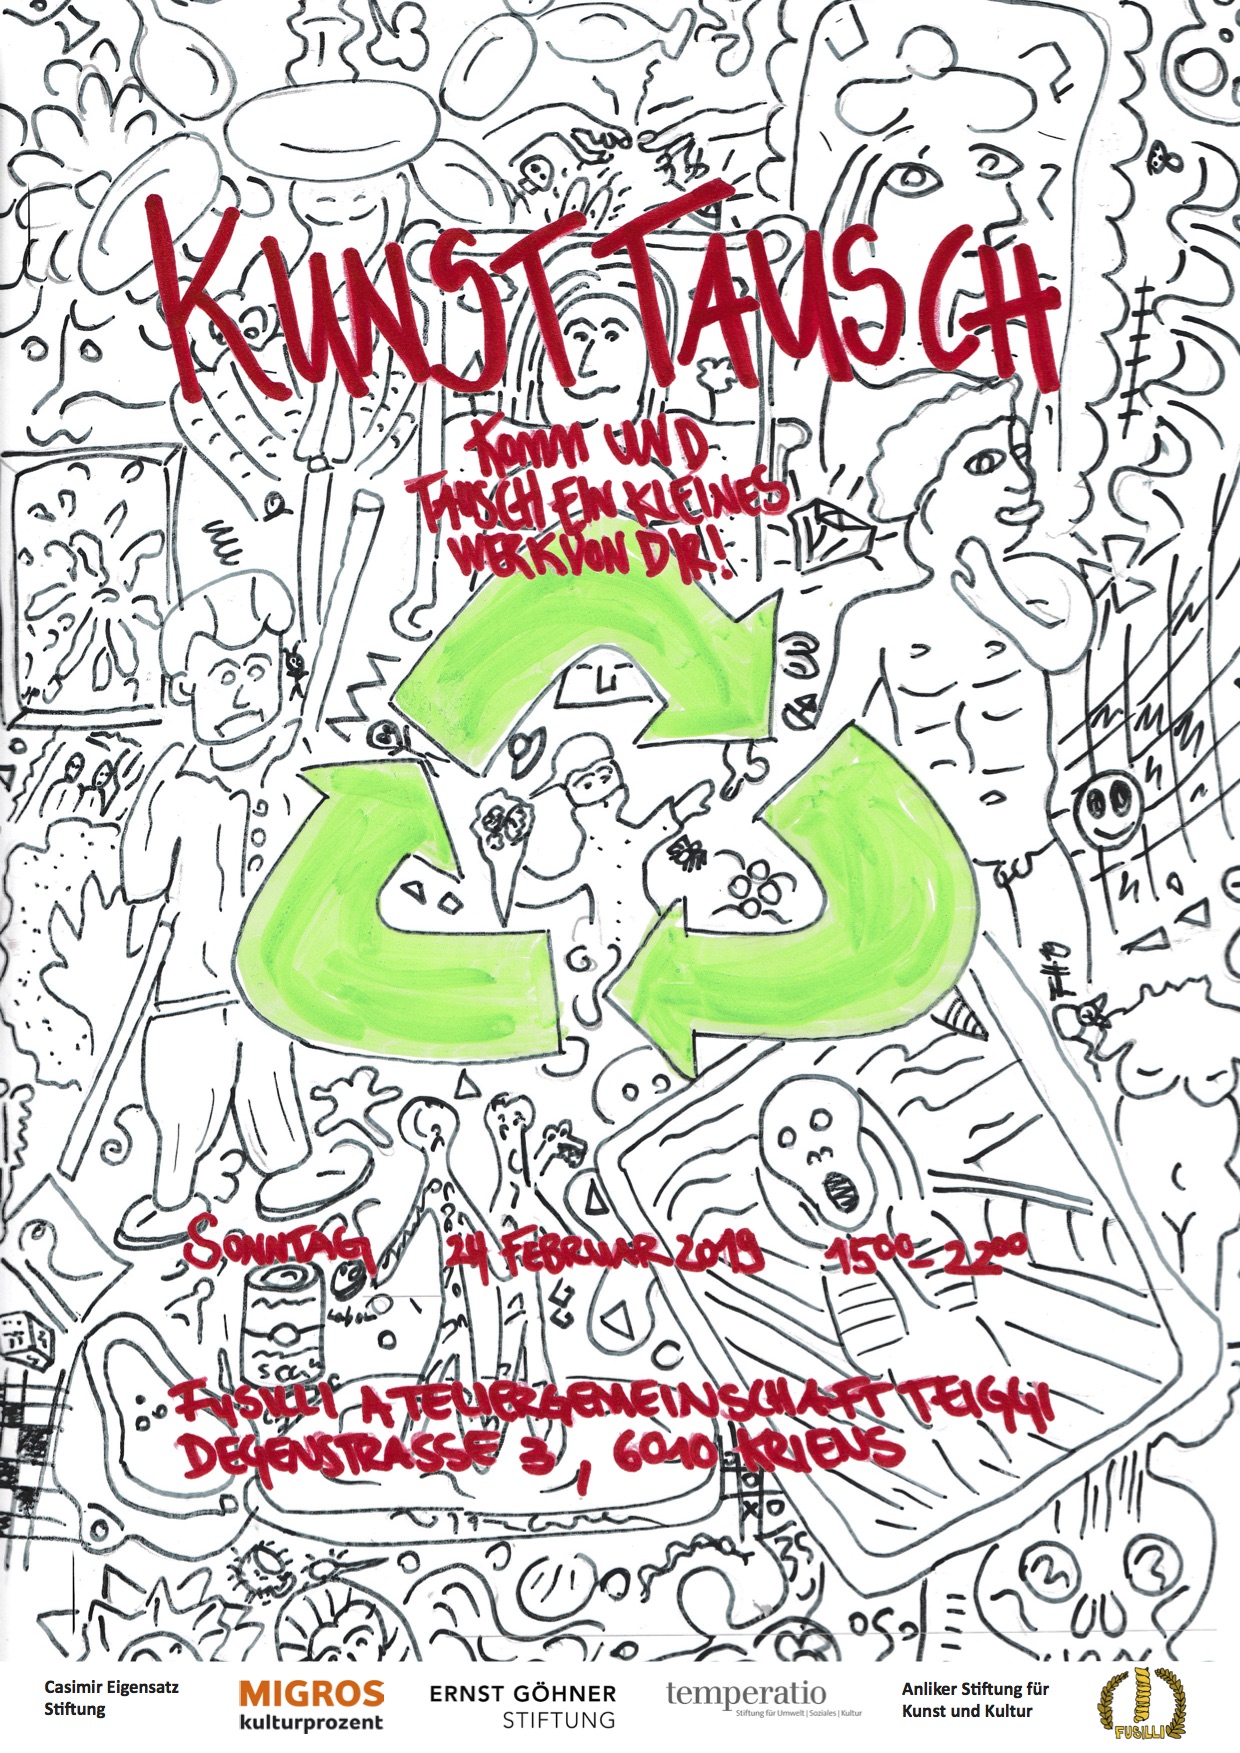 KUNST TAUSCH
KOMM UND
TAUSCH EIN KLEINES
WERK VON DIR!
SONNTAG 24 FEBRUAR 2019 15⁰⁰–22⁰⁰
FUSILLI ATELIERGEMEINSCHAFT TEIGGI
DEGENSTRASSE 3, 6010 KRIENS
Casimir Eigensatz
Stiftung
MIGROS
kulturprozent
ERNST GÖHNER
STIFTUNG
temperatio
Stiftung für Umwelt | Soziales | Kultur
Anliker Stiftung für
Kunst und Kultur
FUSILLI